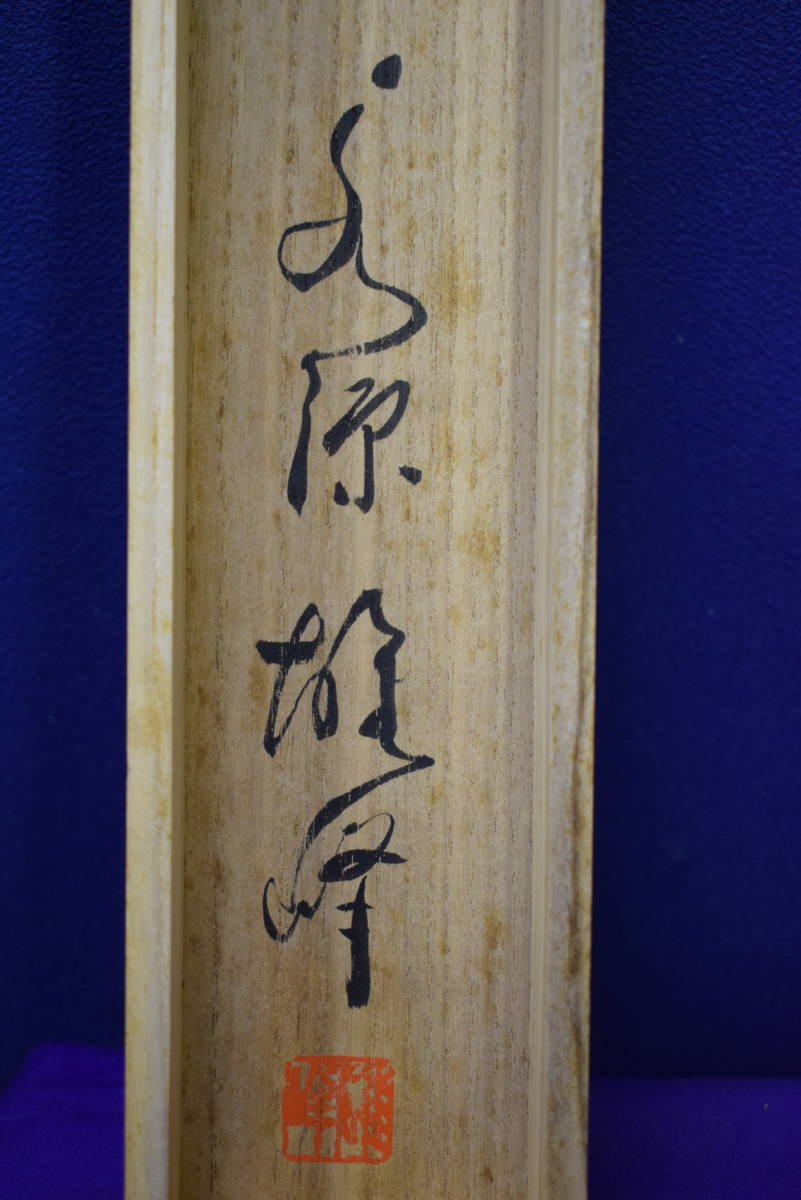 永原雄峰